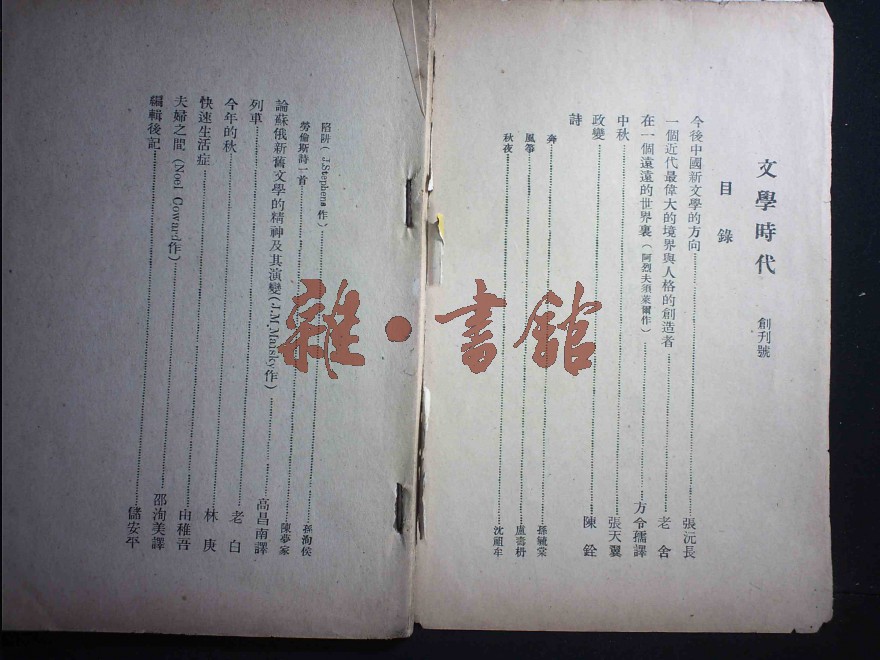 文學時代 創刊號
目錄
今後中國新文學的方向……張沅長
一個近代最偉大的境界與人格的創造者……老舍
在一個遠遠的世界裏(阿烈夫須萊爾作)……方令孺譯
中秋……張天翼
政變……陳銓
詩
奔……孫毓棠
風箏……盧壽枬
秋夜……沈祖牟
陷阱(J.Stephens作)……孫洵侯
勞倫斯詩一首……陳夢家
論蘇俄新舊文學的精神及其演變(J.M.Mansky作)……高昌南譯
列車……老白
今年的秋……林庚
快速生活症……由稚吾
夫婦之間(Noel Coward作)……邵洵美譯
編輯後記……儲安平
雜·書館